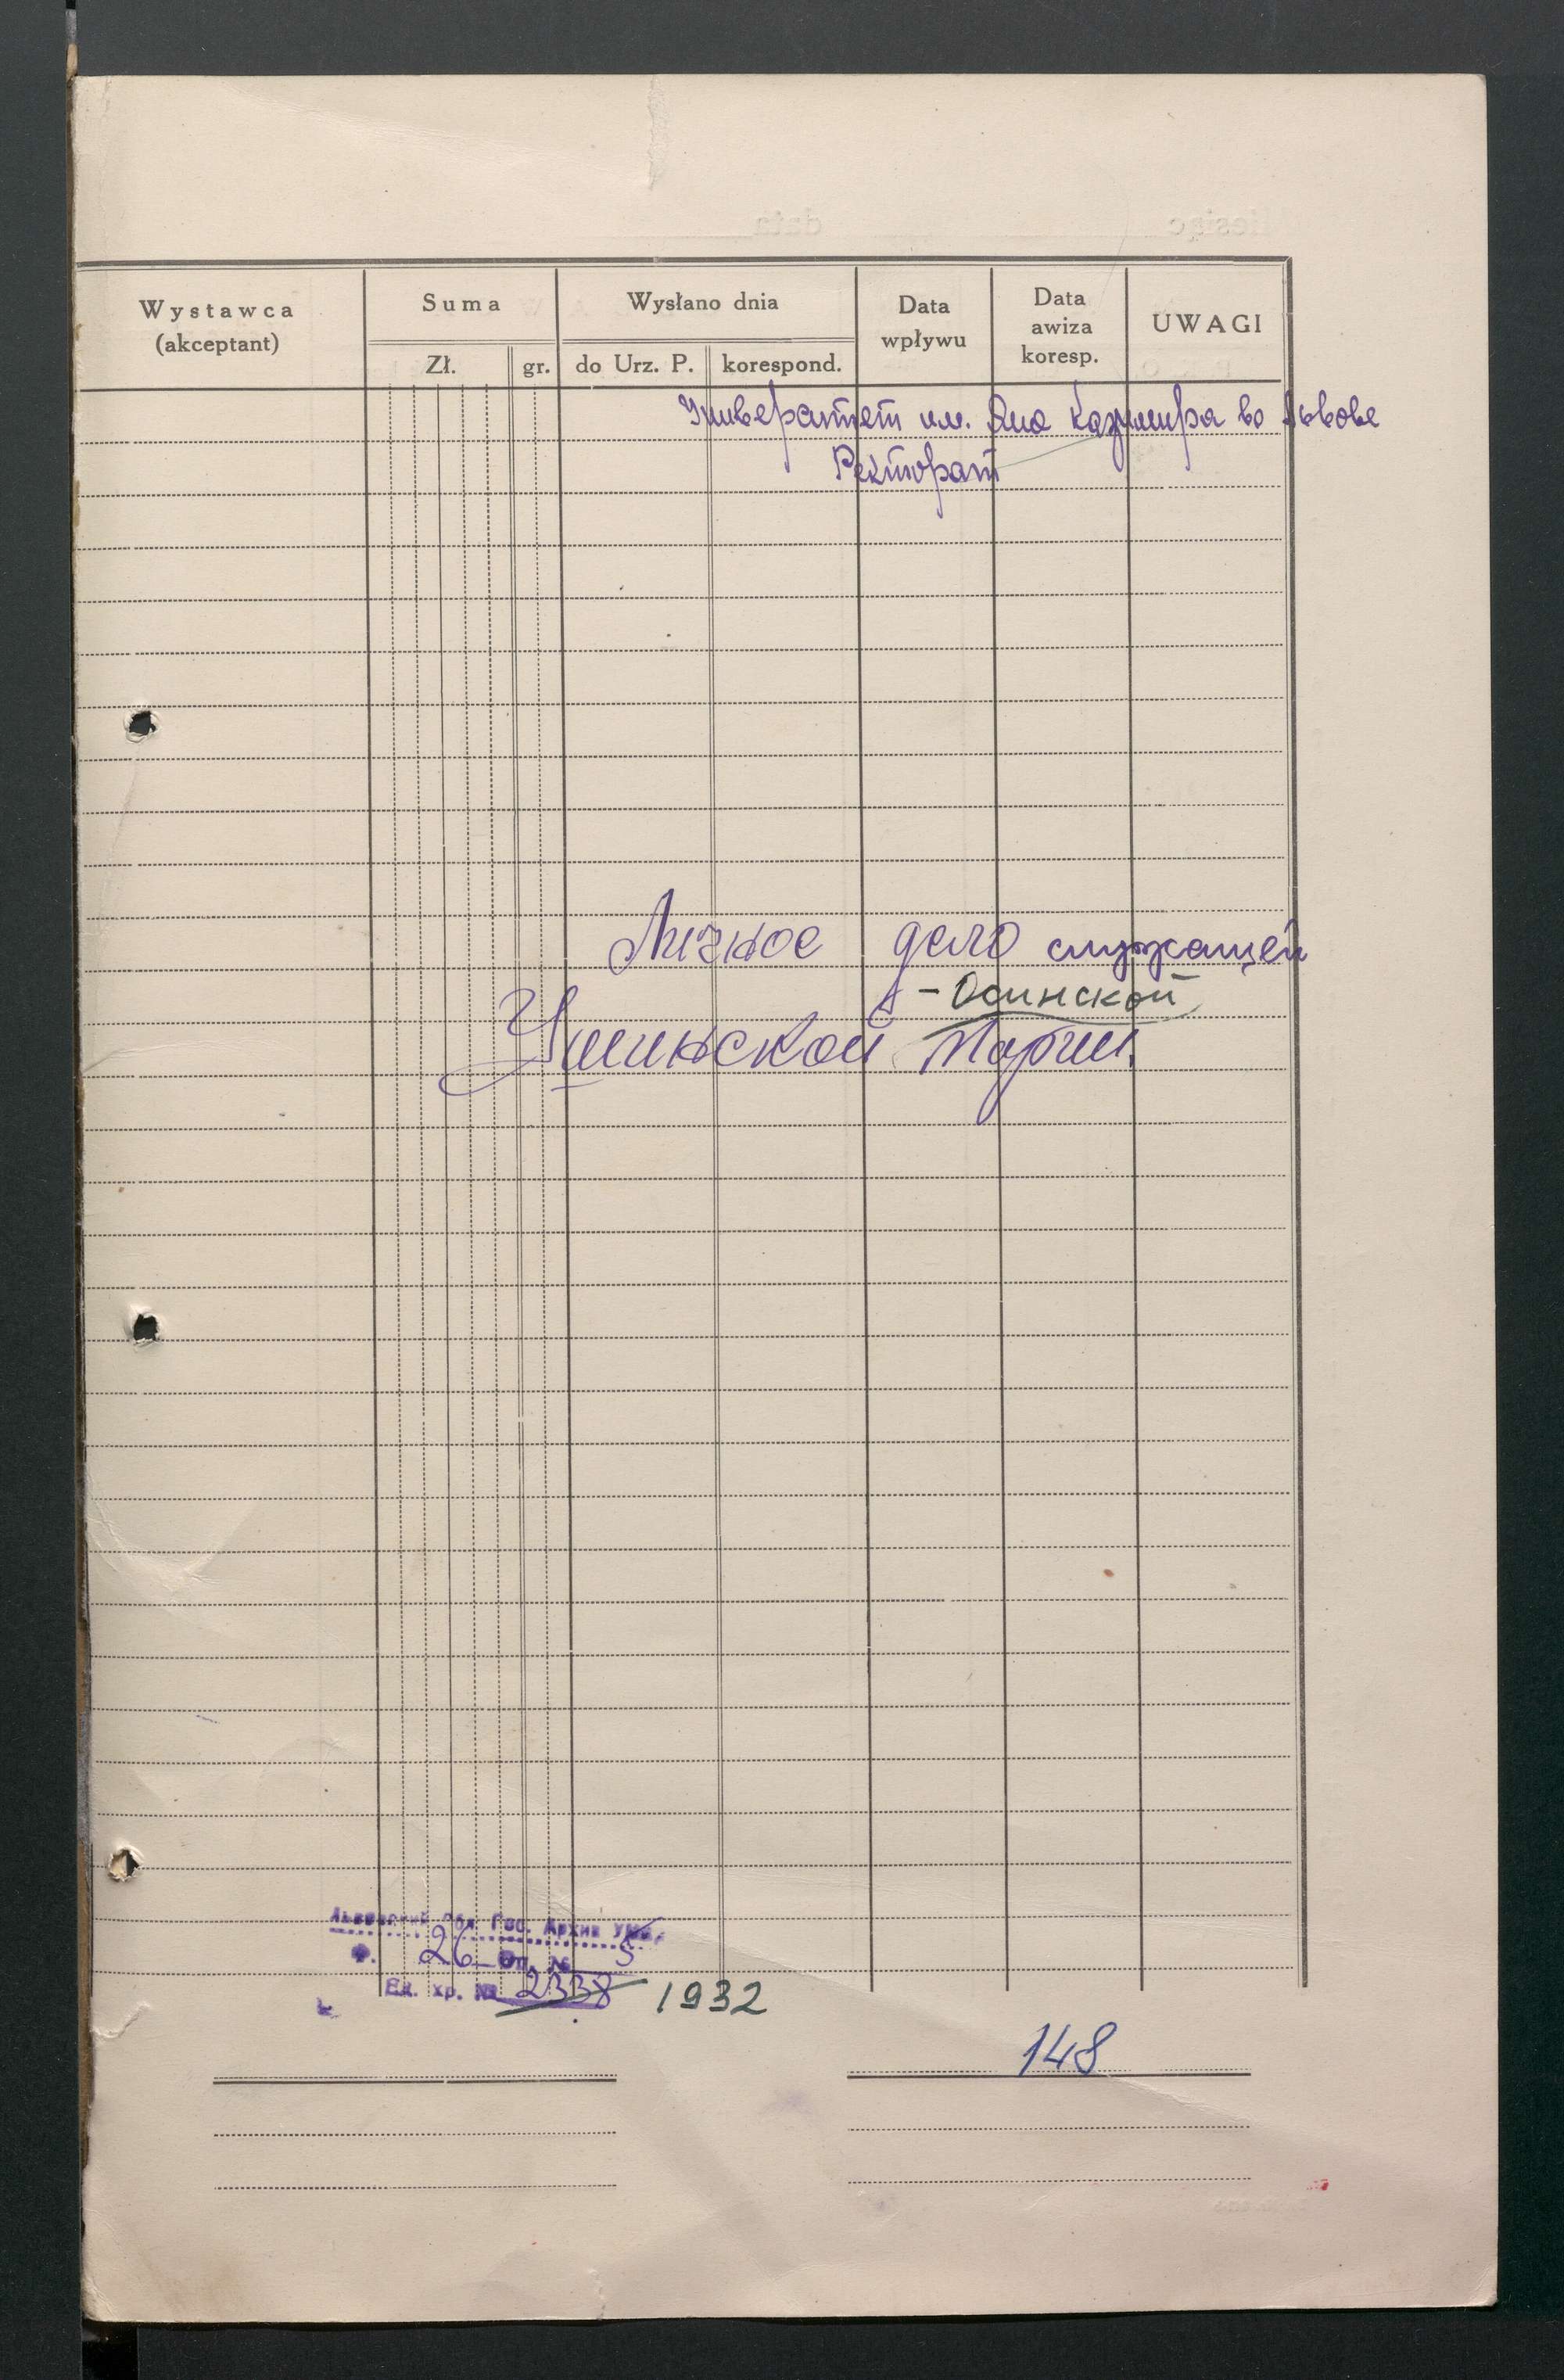 Wystawca (akceptant) Suma Zł. gr. Wysłano dnia do Urz. P. korespond. Data wpływu Data awiza koresp. UWAGI
Университет им. Яна Казимира во Львове
Ректорат
Личное дело служащей
- Осинской
Уминской Марии
Львовский Обл. Гос. Архив
Ф. 26 Оп. № 5
Ед. хр. № 2338 1932
148